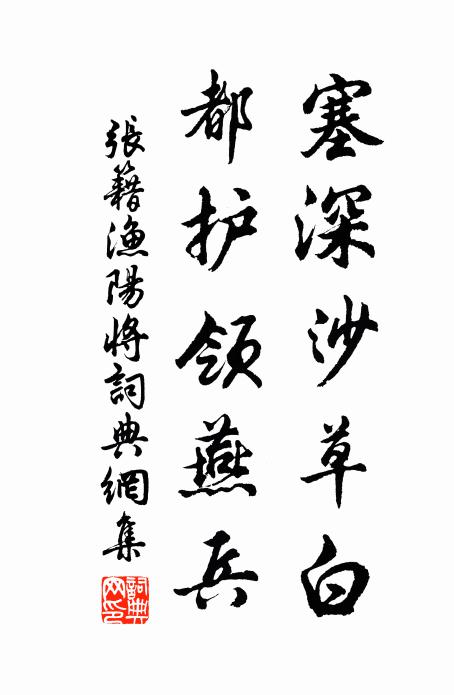 塞深沙草白
都护领燕兵
張籍漁陽將詞典網集
詞典
网印